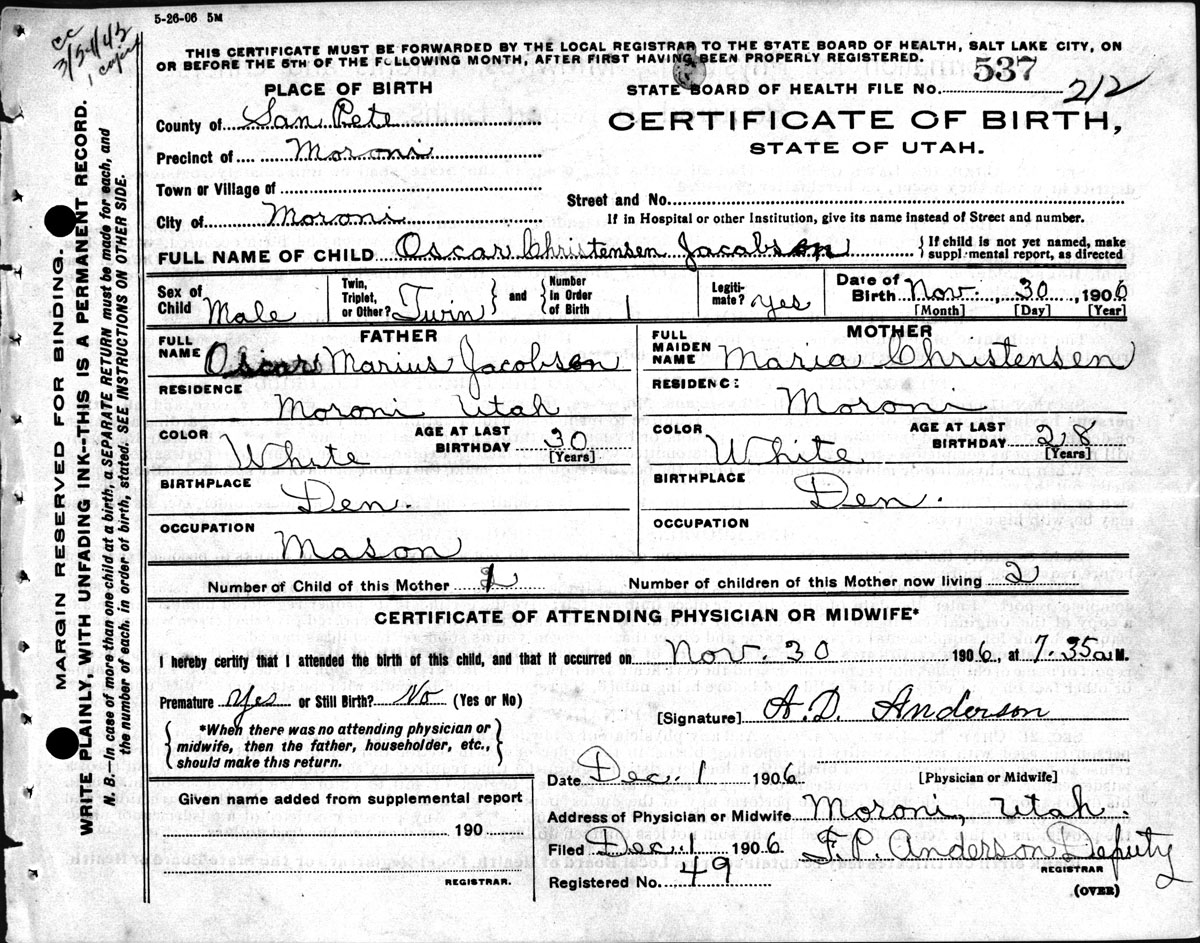 5-26-06 5M
cc
3/5-1/43
1 copy
THIS CERTIFICATE MUST BE FORWARDED BY THE LOCAL REGISTRAR TO THE STATE BOARD OF HEALTH, SALT LAKE CITY, ON
OR BEFORE THE 5TH OF THE FOLLOWING MONTH, AFTER FIRST HAVING BEEN PROPERLY REGISTERED.
STATE BOARD OF HEALTH FILE No. 537 212
PLACE OF BIRTH
CERTIFICATE OF BIRTH,
STATE OF UTAH.
County of San Pete
Precinct of Moroni
Town or Village of
Street and No.
City of Moroni
If in Hospital or other Institution, give its name instead of Street and number.
FULL NAME OF CHILD Oscar Christensen Jacobson { If child is not yet named, make suppl·mental report, as directed
Sex of Child Male Twin, Triplet, or Other? Twin } and { Number in Order of Birth 1 Legiti-mate? yes Date of Birth Nov. 30, 1906
[Month] [Day] [Year]
FATHER
FULL NAME Oscar Marius Jacobson
RESIDENCE
Moroni Utah
COLOR White AGE AT LAST BIRTHDAY 30
[Years]
BIRTHPLACE
Den.
OCCUPATION
Mason
MOTHER
FULL MAIDEN NAME Maria Christensen
RESIDENC:
Moroni
COLOR White AGE AT LAST BIRTHDAY 28
[Years]
BIRTHPLACE
Den.
OCCUPATION
Number of Child of this Mother Number of children of this Mother now living 2
CERTIFICATE OF ATTENDING PHYSICIAN OR MIDWIFE*
I hereby certify that I attended the birth of this child, and that it occurred on Nov. 30 1906, at 7.35 a M.
Premature Yes or Still Birth? No (Yes or No)
[Signature] A. D. Anderson
{ *When there was no attending physician or
midwife, then the father, householder, etc.,
should make this return. }
Date Dec. 1 1906 [Physician or Midwife]
Given name added from supplemental report
190
REGISTRAR.
Address of Physician or Midwife Moroni, Utah.
Filed Dec. 1 1906 F. P. Anderson Deputy
REGISTRAR
Registered No. 49
(OVER)
MARGIN RESERVED FOR BINDING.
WRITE PLAINLY, WITH UNFADING INK--THIS IS A PERMANENT RECORD.
N. B.—In case of more than one child at a birth, a SEPARATE RETURN must be made for each, and
the number of each, in order of birth, stated. SEE INSTRUCTIONS ON OTHER SIDE.